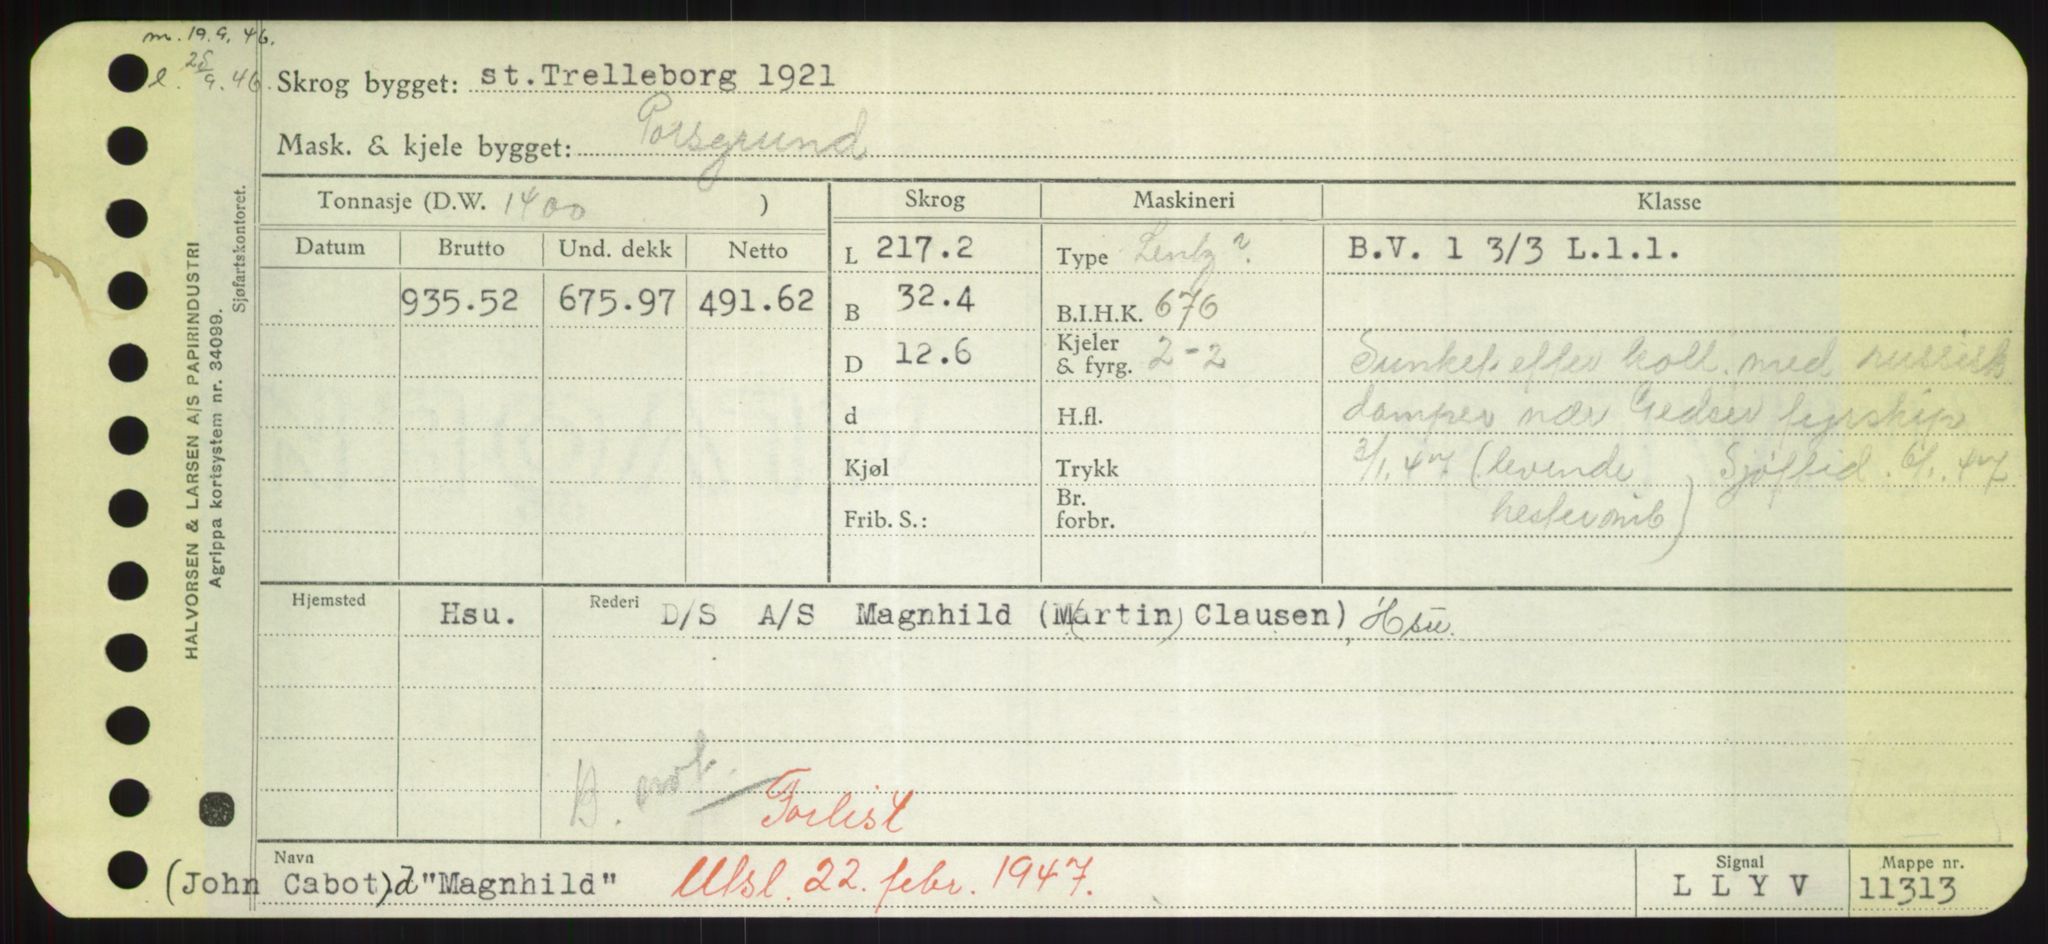 m. 19.9. 46.
l. 25/9. 46.
Skrog bygget: st.Trelleborg 1921
Mask. & kjele bygget: Porsgrund
Tonnasje (D.W. 1400 )
Skrog
Maskineri
Klasse
Datum Brutto Und. dekk Netto
935.52 675.97 491.62
L 217.2
B 32.4
D 12.6
d
Kjøl
Frib. S.:
Type Lentz ?
B.I.H.K. 676
Kjeler & fyrg. 2-2
H.fl.
Trykk
Br. forbr.
B.V. 1 3/3 L.1.1.
Sunket efter koll. med russisk
damper nær Gedser fyrskip
3/1.47 (levende Sjøftid. 6/1.47
hester omb)
Hjemsted Hsu.
Rederi D/S A/S Magnhild (M(artin) Clausen), Hsu.
D. Forlist
Navn
(John Cabot) d "Magnhild" Utsl. 22. febr. 1947.
Signal
L L Y V
Mappe nr.
11313
HALVORSEN & LARSEN A/S PAPIRINDUSTRI
Agrippa kortsystem nr. 34099.
Sjøfartskontoret.